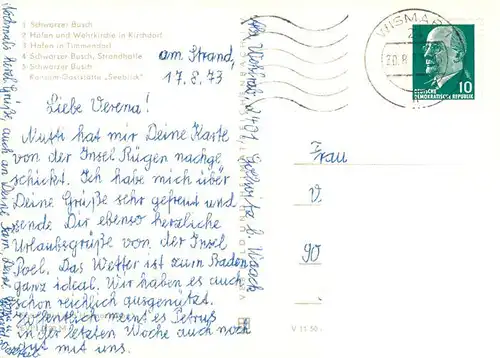 1 Schwarzer Busch
2 Hafen und Wehrkirche in Kirchdorf
3 Hafen in Timmendorf
4 Schwarzer Busch, Strandhalle
5 Schwarzer Busch
Konsum-Gaststätte „Seeblick"
am Strand,
17.8.73
Liebe Verena!
Mutti hat mir Deine Karte
von der Insel Rügen nachge
schickt. Ich habe mich über
Deine Grüße sehr gefreut und
sende Dir ebenso herzliche
Urlaubsgrüße von der Insel
Poel. Das Wetter ist zum Baden
ganz ideal. Wir haben es auch
schon reichlich ausgenützt.
Hoffentlich meint es Petrus
in der letzten Woche auch noch
gut mit uns.
Nochmals herzl. Grüße auch an Deine Fam. Deine
WISMAR
20.8
10
DEUTSCHE
DEMOKRATISCHE REPUBLIK
Frau
V.
90
V 11 50